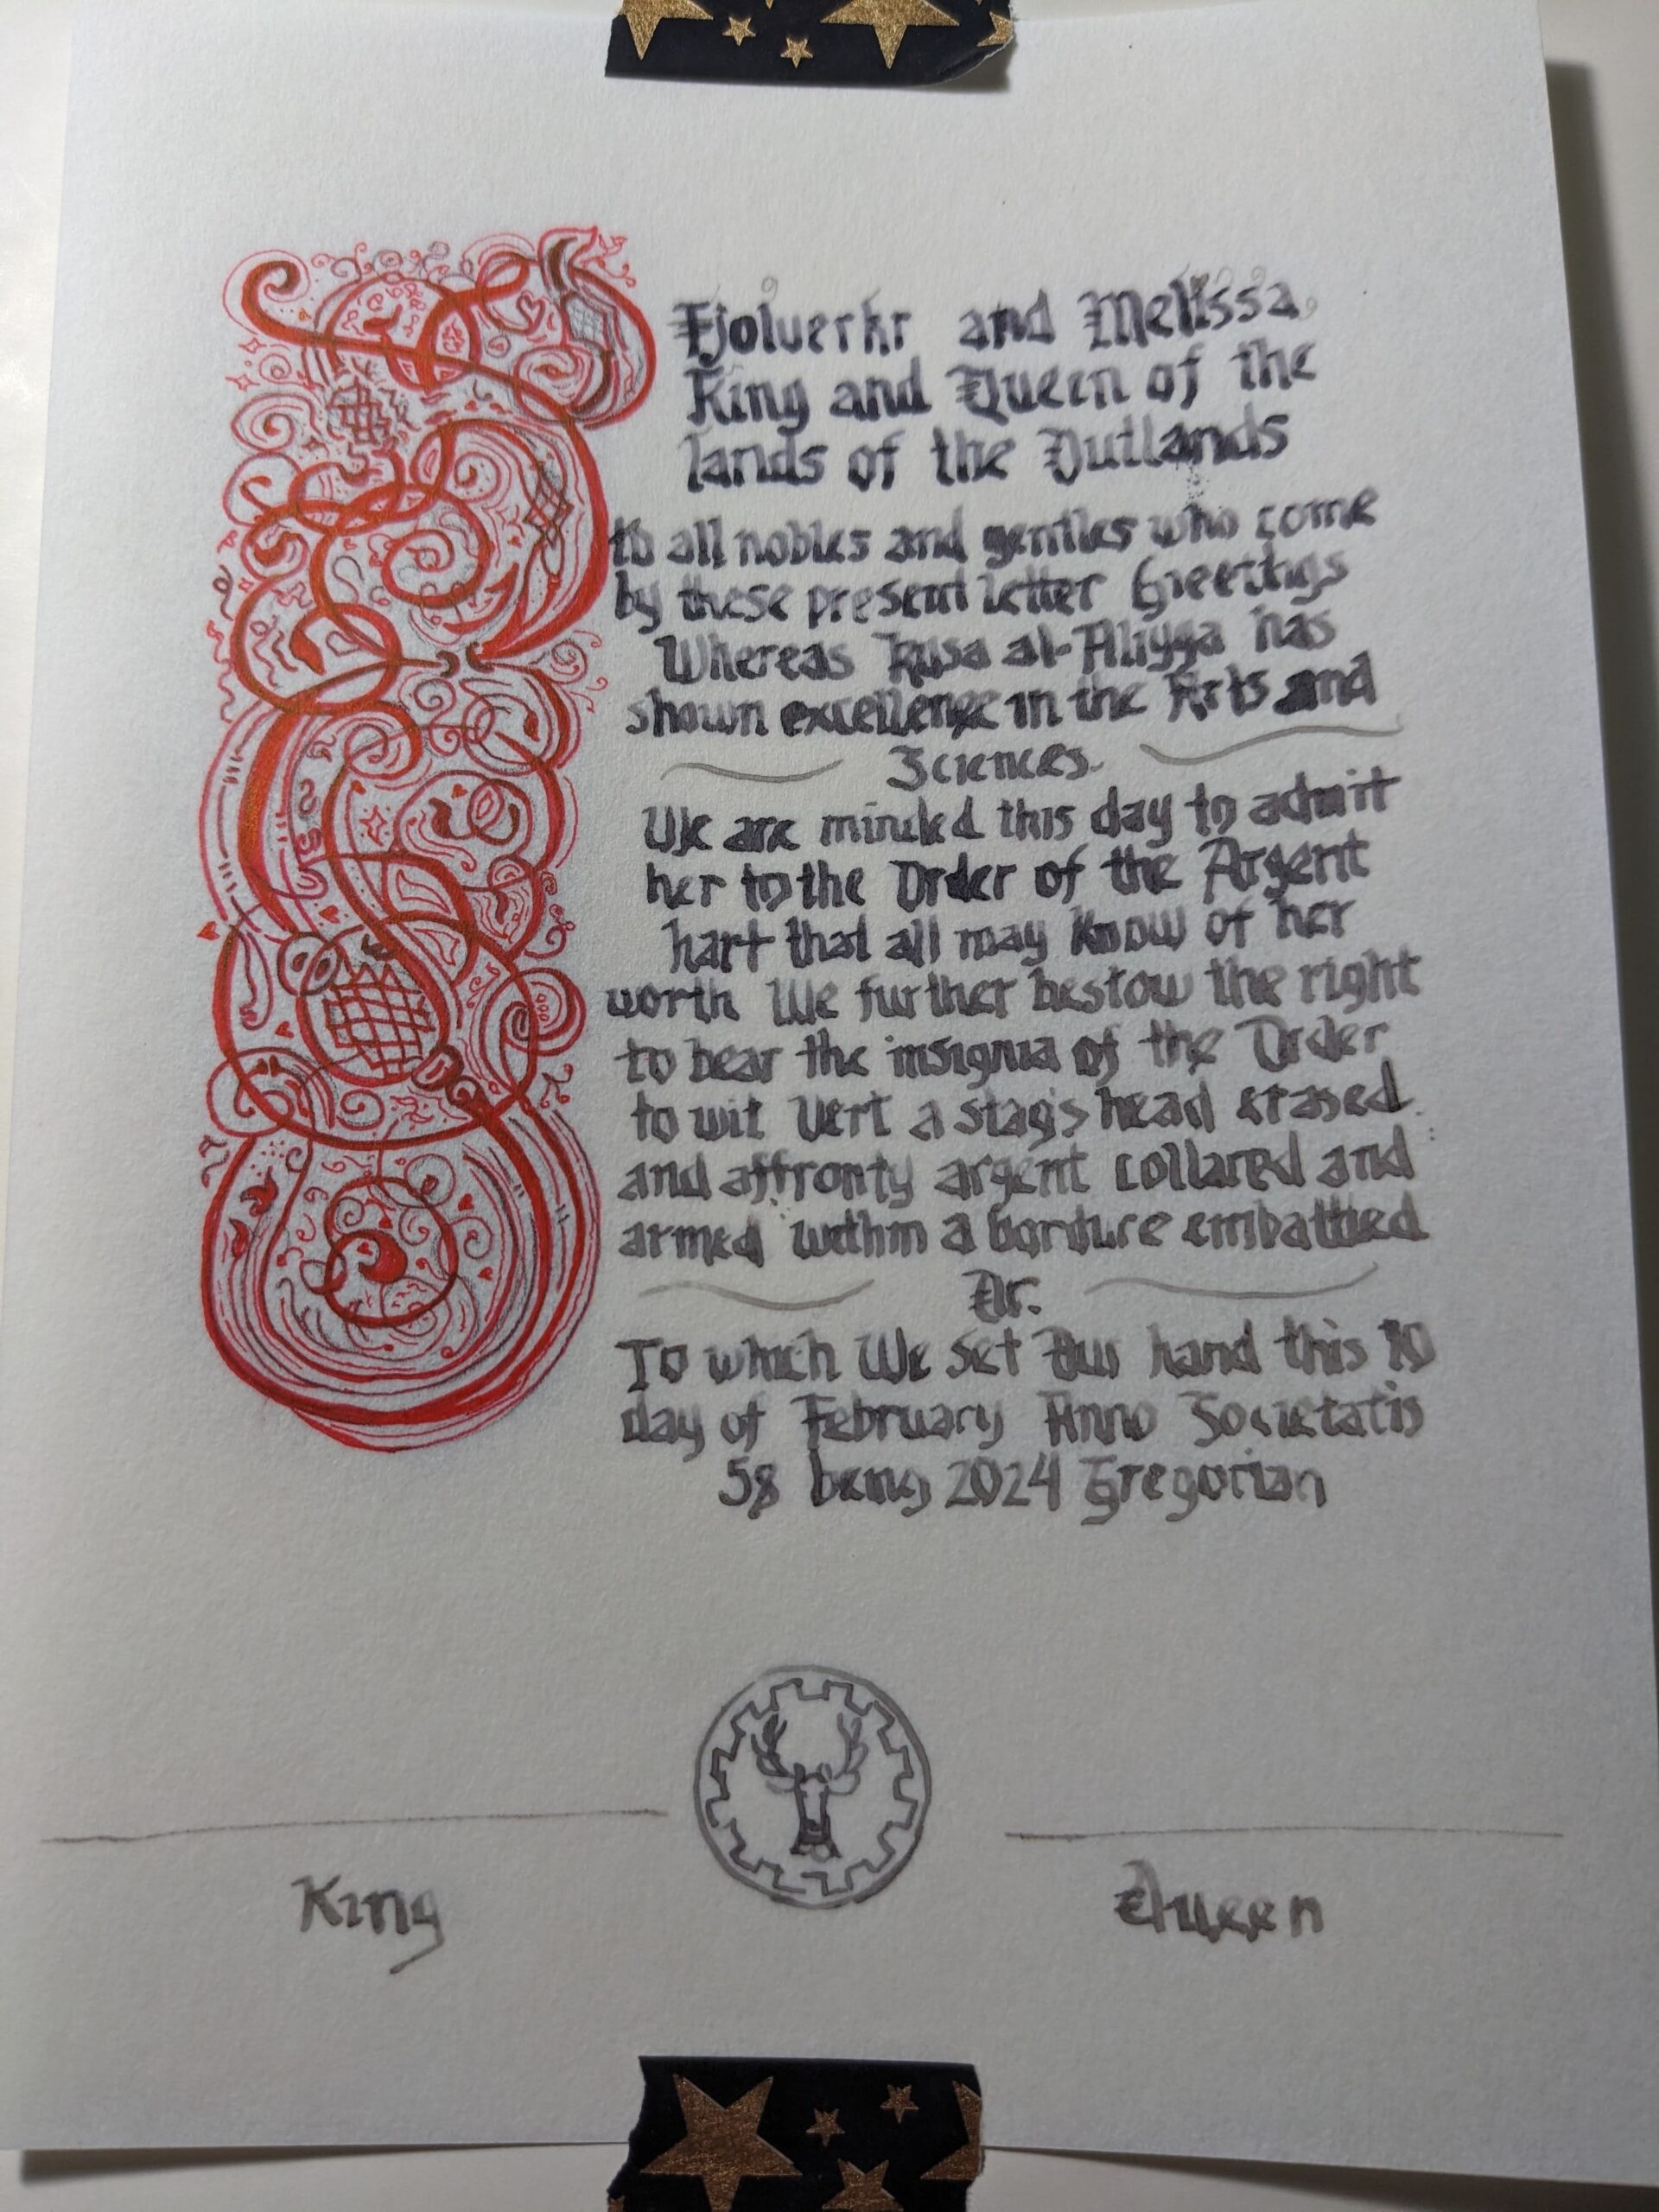 Fjolverkr and Melissa
King and Queen of the
lands of the Outlands
to all nobles and gentles who come
by these present letter Greetings
Whereas Rusa al-Aliyya has
shown excellence in the Arts and
Sciences.
We are minded this day to admit
her to the Order of the Argent
hart that all may know of her
worth We further bestow the right
to bear the insignia of the Order
to wit Vert a stag's head erased
and affronty argent collared and
armed within a bordure embattled
Or.
To which We set Our hand this 10
day of February Anno Societatis
58 being 2024 Gregorian
King
Queen